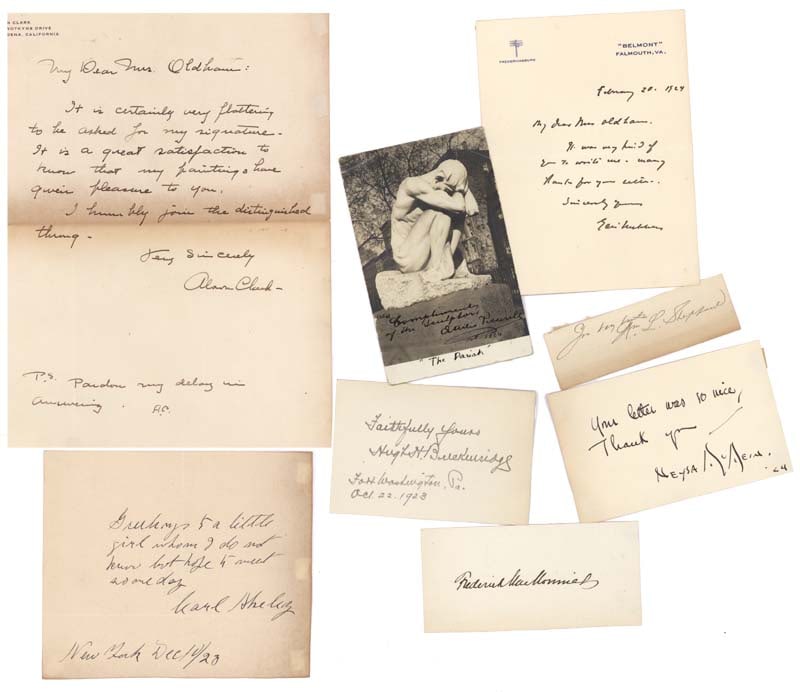 N CLARK
ROTHYNE DRIVE
DENA, CALIFORNIA
My Dear Mrs. Oldham:
It is certainly very flattering
to be asked for my signature.
It is a great satisfaction to
know that my paintings have
given pleasure to you.
I humbly join the distinguished
throng.
Very Sincerely
Alson Clark
P.S. Pardon my delay in
answering. A.C.
FREDERICKSBURG
"BELMONT"
FALMOUTH, VA.
February 20. 1924
My dear Mrs Oldham.
It was very kind of
you to write me. many
thanks for your letter.
Sincerely yours
Compliments
of the Sculptor,
Attilio Piccirilli
"The Pariah"
L. Sheppard
Faithfully yours
Hugh H. Breckenridge
Fort Washington, Pa.
Oct. 22. 1923
Your letter was so nice,
Thank you
NEYSA McMEIN.
Greetings to a little
girl whom I do not
know but hope to meet
some day
Karl
New York Dec 14/23
Frederick MacMonnies